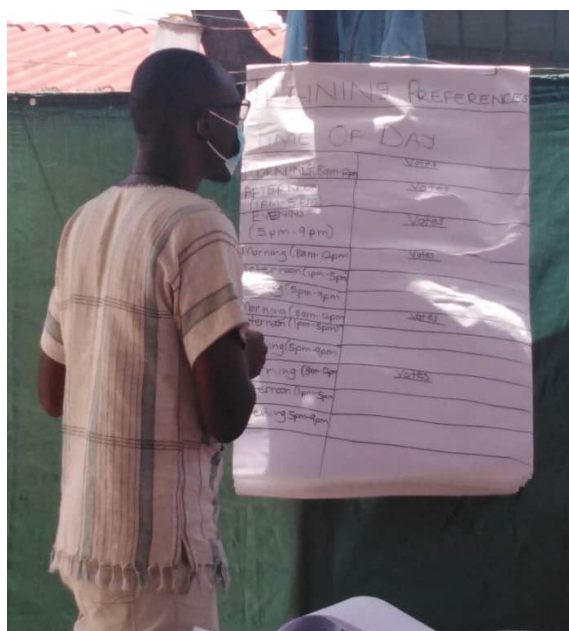 TRAINING PREFERENCES
TIME OF DAY
MORNING (8am-12pm Votes
AFTERNOON Votes
(1PM-5PM)
EVENING Votes
(5pm-9pm)
Morning (8am-12pm Votes
Afternoon (1pm-5pm)
(5pm-9pm
Morning (8am-12pm Votes
ternoon (1pm-5pm)
ning (5pm-9pm)
rning (8am-12pm Votes
ternoon (1pm-5pm
vening 5pm-9pm)